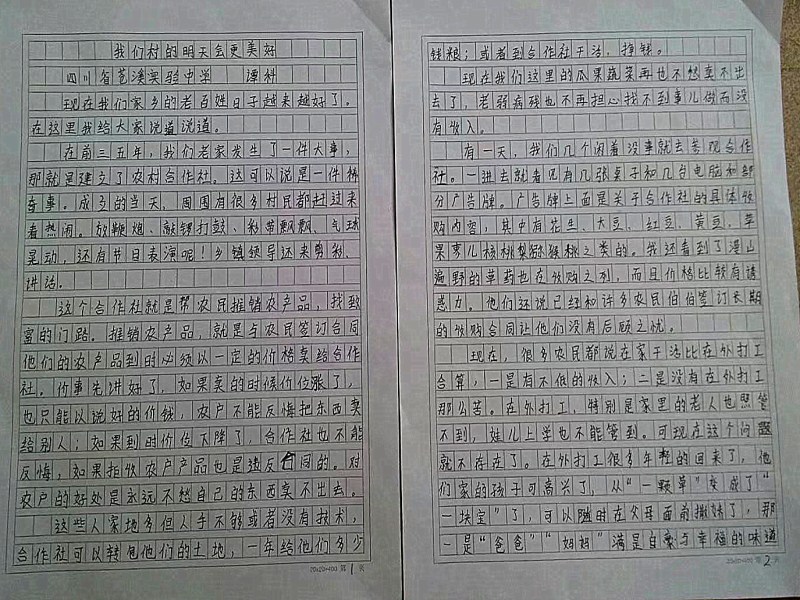 我们村的明天会更美好
四川省苍溪实验中学 谭科
现在我们家乡的老百姓日子越来越好了。
在这里我给大家说道说道。
在前三五年，我们老家发生了一件大事，
那就是建立了农村合作社。这可以说是一件稀
奇事。成立的当天，周围有很多村民都赶过来
看热闹。放鞭炮、敲锣打鼓、彩带飘飘、气球
晃动，还有节目表演呢！乡镇领导还来剪彩、
讲话。
这个合作社就是帮农民推销农产品，找致
富的门路。推销农产品，就是与农民签订合同
他们的农产品到时必须以一定的价格卖给合作
社。价事先讲好了，如果卖的时候价位涨了，
也只能以说好的价钱，农户不能反悔把东西卖
给别人；如果到时价位下降了，合作社也不能
反悔，如果拒收农户产品也是违反合同的。对
农户的好处是永远不愁自己的东西卖不出去。
这些人家地多但人手不够或者没有技术，
合作社可以转包他们的土地，一年给他们多少
20x20=400 第1页
钱粮；或者到合作社干活，挣钱。
现在我们这里的瓜果蔬菜再也不愁卖不出
去了，老弱病残也不再担心找不到事儿做而没
有收入。
有一天，我们几个闲着没事就去参观合作
社。一进去就看见有几张桌子和几台电脑和部
分广告牌。广告牌上面是关于合作社的具体收
购内容，其中有花生、大豆、红豆、黄豆、苹
果梨儿核桃猕猴桃之类的。我还看到了漫山
遍野的草药也在收购之列，而且价格比较有诱
惑力。他们还说已经和许多农民伯伯签订长期
的收购合同让他们没有后顾之忧。
现在，很多农民都说在家干活比在外打工
合算，一是有不低的收入；二是没有在外打工
那么苦。在外打工，特别是家里的老人也照管
不到，娃儿上学也不能管到。可现在这个问题
就不存在了。在外打工很多年轻的回来了，他
们家的孩子可高兴了，从“一颗草”变成了“
一块宝”了，可以随时在父母面前撒娇了，那
一是“爸爸”“妈妈”满是自豪与幸福的味道
20x20=400 第2页